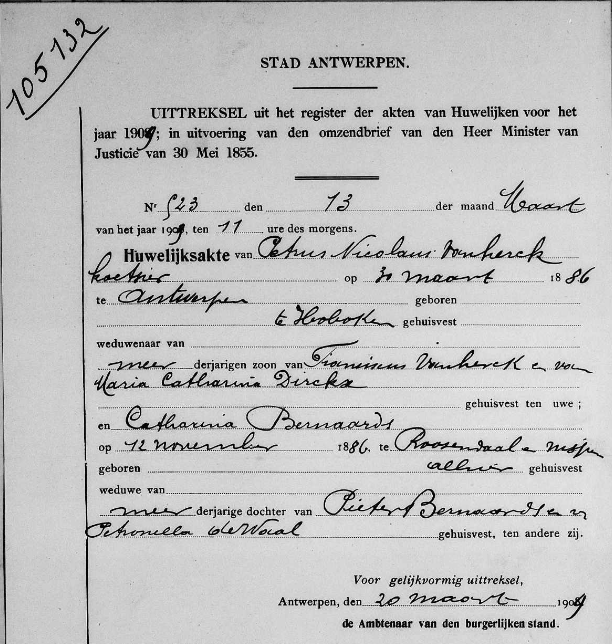 105132
STAD ANTWERPEN.
UITTREKSEL uit het register der akten van Huwelijken voor het
jaar 1909; in uitvoering van den omzendbrief van den Heer Minister van
Justicië van 30 Mei 1855.
Nr 523 den 13 der maand Maart
van het jaar 1909, ten 11 ure des morgens.
Huwelijksakte van Petrus Nicolaus Vanherck
koetsier op 30 maart 1886
te Antwerpen geboren
te Hoboken gehuisvest
weduwenaar van
meer derjarigen zoon van Franciscus Vanherck en van
Maria Catharina Dirckx
gehuisvest ten uwe ;
en Catharina Bernaards
op 12 november 1886. te Roosendaal en
geboren alhier gehuisvest
weduwe van
meer derjarige dochter van Pieter Bernaards en v
Petronella de Waal gehuisvest, ten andere zij.
Voor gelijkvormig uittreksel,
Antwerpen, den 20 maart 1909
de Ambtenaar van den burgerlijken stand.